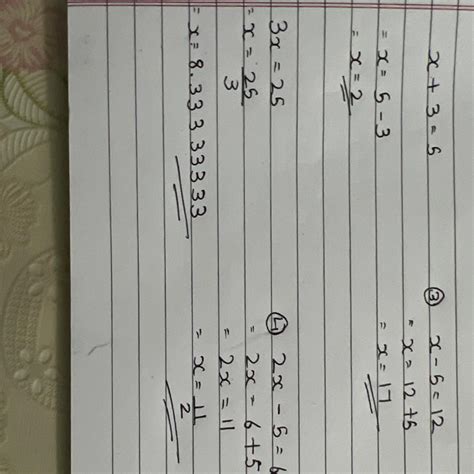 x + 3 = 5
= x = 5 - 3
= x = 2
3x = 25
= x = 25/3
= x = 8.33333333
③ x - 5 = 12
= x = 12+5
= x = 17
④ 2x - 5 = 6
= 2x = 6+5
= 2x = 11
= x = 11/2